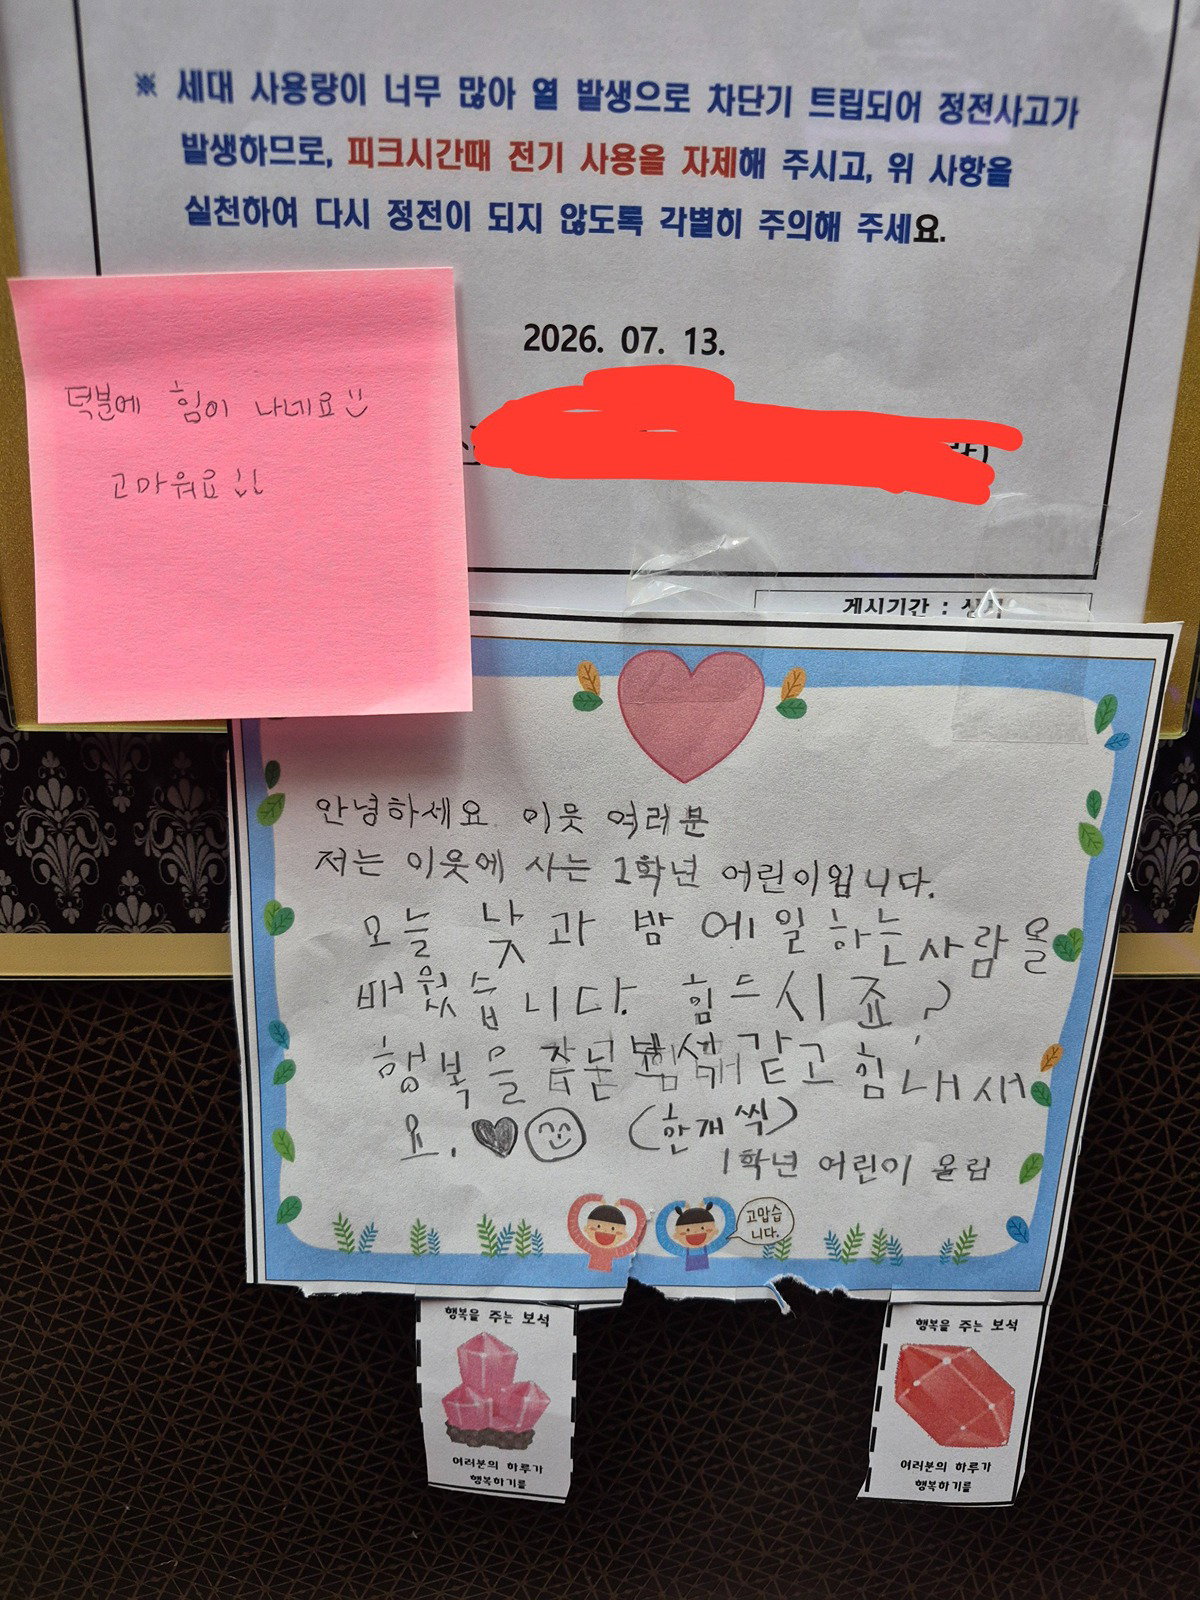 ※ 세대 사용량이 너무 많아 열 발생으로 차단기 트립되어 정전사고가
발생하므로, 피크시간때 전기 사용을 자제해 주시고, 위 사항을
실천하여 다시 정전이 되지 않도록 각별히 주의해 주세요.
2026. 07. 13.
게시기간 :
덕분에 힘이 나네요
고마워요
안녕하세요 이웃 여러분
저는 이웃에 사는 1학년 어린이입니다.
오늘 낮과 밤에 일하는 사람을
배웠습니다. 힘드시죠?
행복을 같고 힘내세
요. (한개씩)
1학년 어린이 올림
고맙습
니다.
행복을 주는 보석
여러분의 하루가
행복하기를
행복을 주는 보석
여러분의 하루가
행복하기를